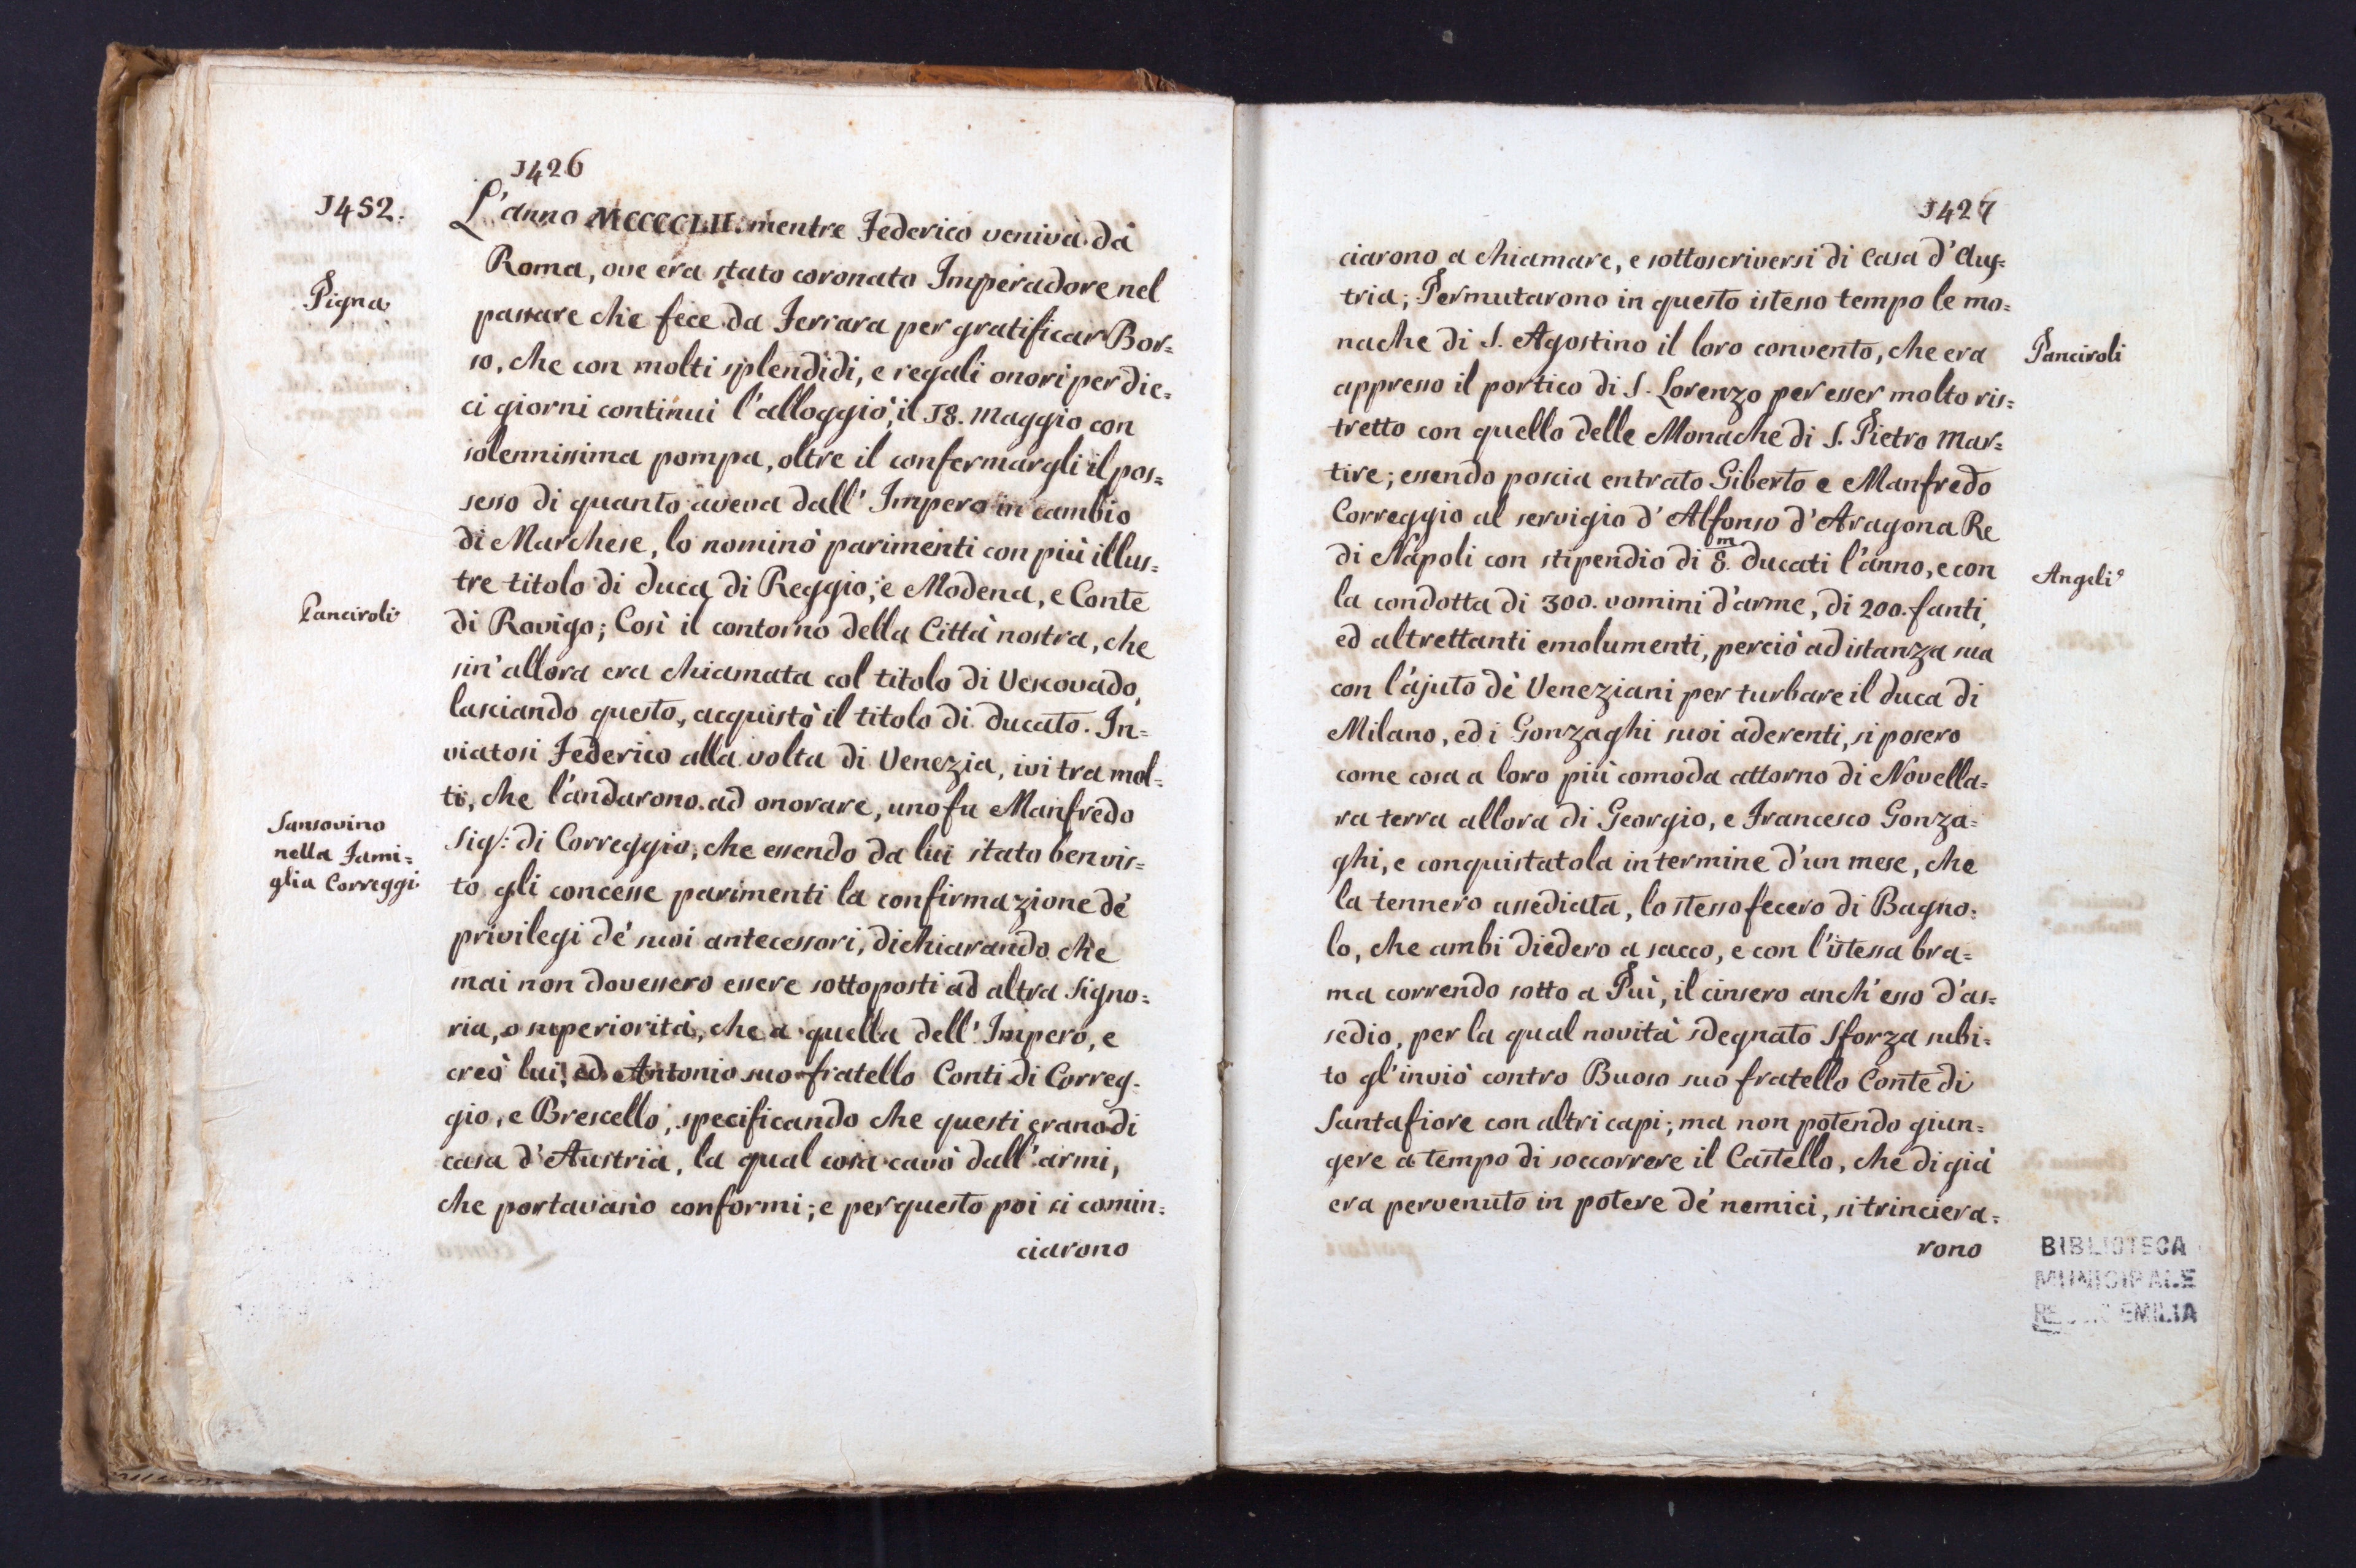 1426
1452.
L'anno MCCCCLII. mentre Federico veniva da
Roma, ove era stato coronato Imperadore nel
Pigna
passare che fece da Ferrara per gratificar Bor=
so, che con molti splendidi, e regali onori per die=
ci giorni continui l'alloggiò, il 18. Maggio con
solennissima pompa, oltre il confermargli il pos=
sesso di quanto aveva dall' Impero in cambio
di Marchese, lo nominò parimenti con più illus=
tre titolo di duca di Reggio, e Modena, e Conte
Panciroli
di Rovigo; Così il contorno della Città nostra, che
sin'allora era chiamata col titolo di Vescovado,
lasciando questo, acquistò il titolo di ducato. In=
viatosi Federico alla volta di Venezia, ivi tra mol=
ti, che l'andarono ad onorare, uno fu Manfredo
Sansovino
nella Fami=
glia Correggi
Sig: di Correggio, che essendo da lui stato ben vis=
to gli concesse parimenti la confirmazione de'
privilegi de' suoi antecessori, dichiarando che
mai non dovessero essere sottoposti ad altra Signo=
ria, o superiorità, che a quella dell' Impero, e
creò lui, ed Antonio suo fratello Conti di Correg=
gio, e Brescello, specificando che questi erano di
casa d'Austria, la qual cosa cavò dall' armi,
che portavano conformi; e per questo poi si comin=
ciarono
1427
ciarono a chiamare, e sottoscriversi di Casa d'Aus=
tria; Permutarono in questo istesso tempo le mo=
nache di S. Agostino il loro convento, che era
Panciroli
appresso il portico di S. Lorenzo per esser molto ris=
tretto con quello delle Monache di S. Pietro Mar=
tire; essendo poscia entrato Giberto e Manfredo
Correggio al servigio d'Alfonso d'Aragona Re
di Napoli con stipendio di 8.m ducati l'anno, e con
Angeli
la condotta di 300. uomini d'arme, di 200. fanti,
ed altrettanti emolumenti, perciò ad istanza sua
con l'ajuto de' Veneziani per turbare il duca di
Milano, ed i Gonzaghi suoi aderenti, si posero
come cosa a loro più comoda attorno di Novella=
ra terra allora di Georgio, e Francesco Gonza=
ghi, e conquistatola in termine d'un mese, che
la tennero assediata, lo stesso fecero di Bagno=
lo, che ambi diedero a sacco, e con l'istessa bra=
ma correndo sotto a Puì, il cinsero anch'esso d'as=
sedio, per la qual novità sdegnato Sforza subi=
to gl'inviò contro Buoso suo fratello Conte di
Santafiore con altri capi; ma non potendo giun=
gere a tempo di soccorrere il Castello, che di già
era pervenuto in potere de' nemici, si trinciera=
rono
BIBLIOTECA
MUNICIPALE
REGGIO EMILIA